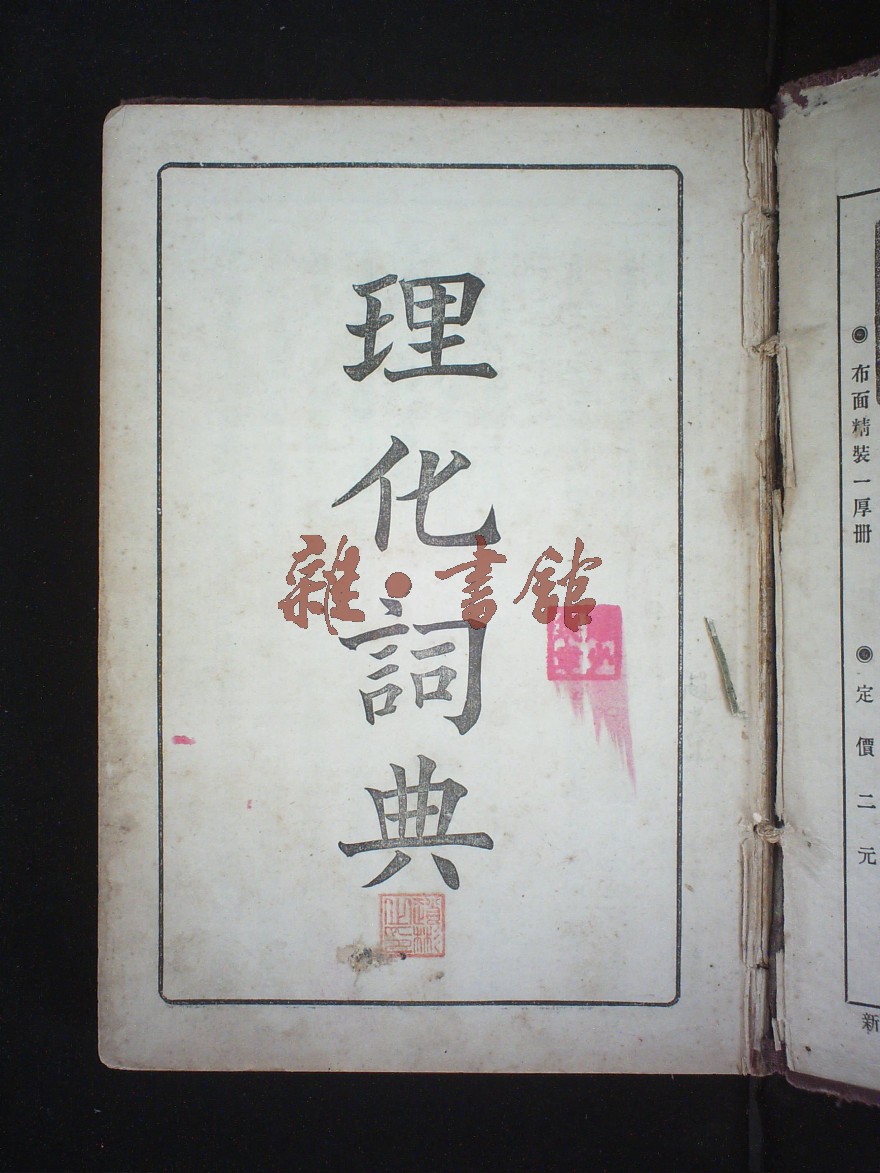 理化詞典
雜·書館
布面精裝一厚册
定價二元
新